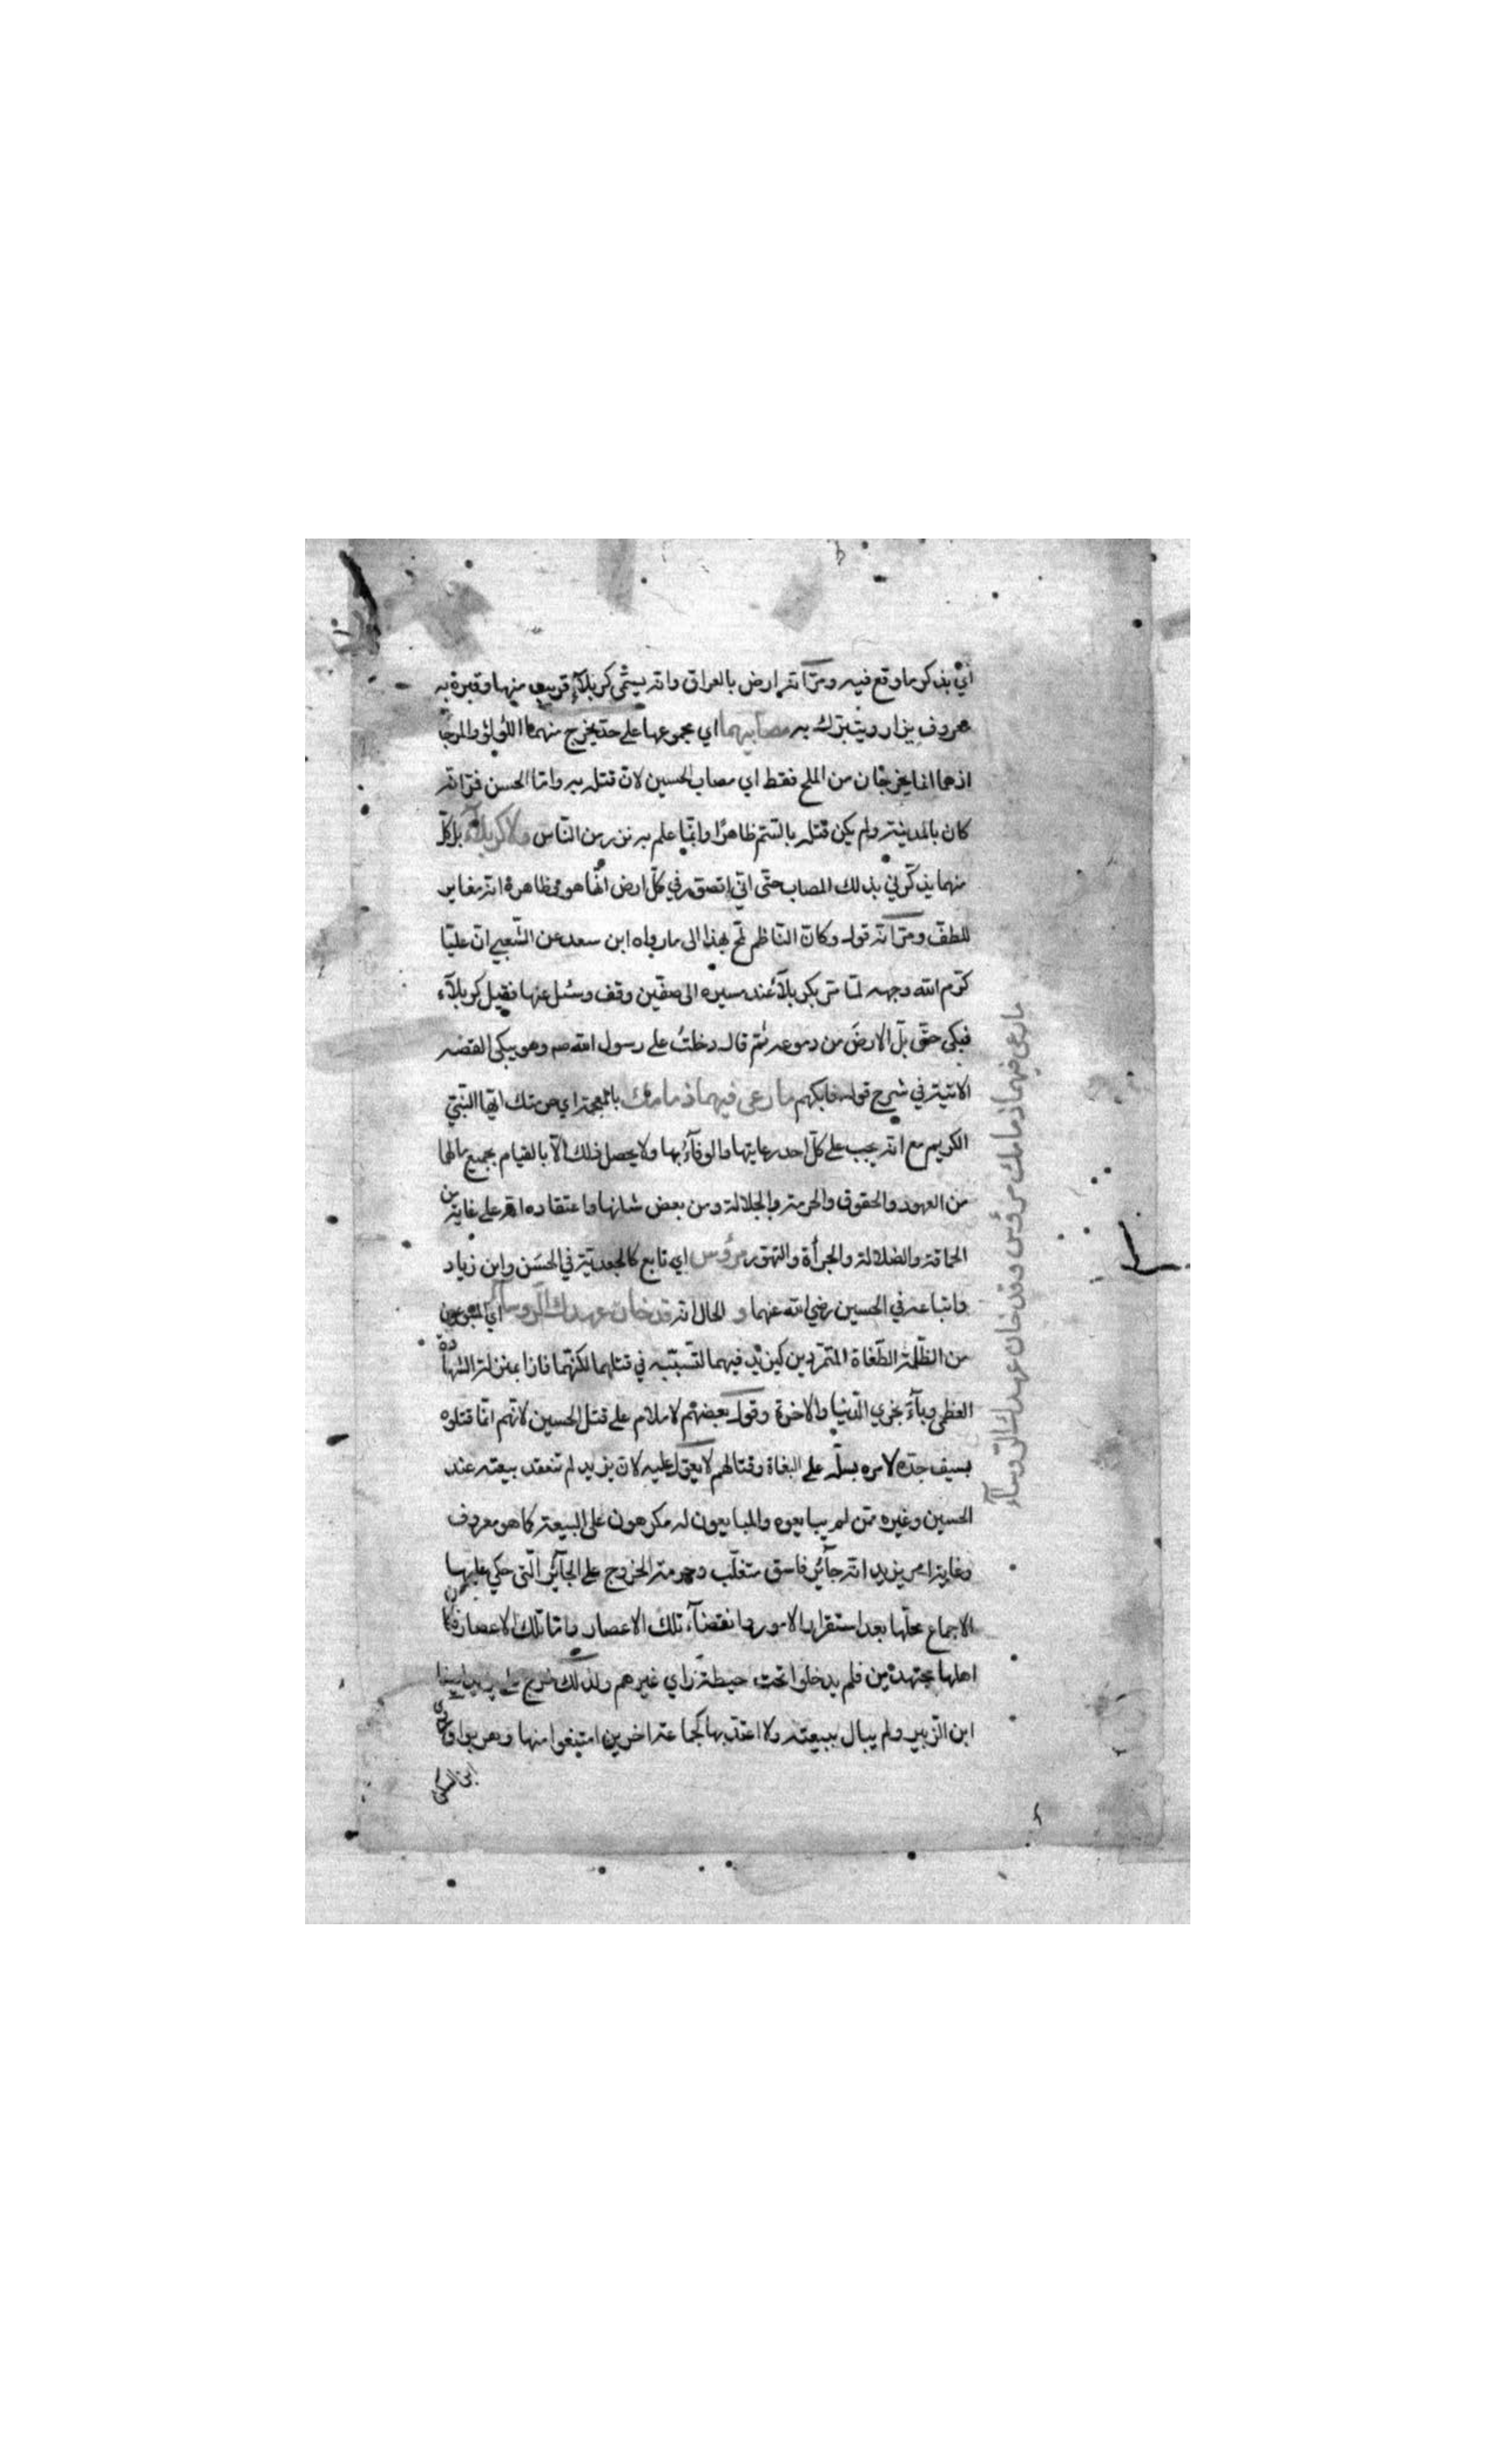 أي بذكر ما وقع فيه ومرّ انه ارض بالعراق وانه يسمّى كربلآء قريب منها وقبره به
معروف يزار ويتبرّك به مصابيهما اي مجموعهما على حدّ يخرج منهما اللؤلؤ والمرجا
اذ هما انما يخرجان من الملح فقط اي مصاب الحسين لانّ قتله به وامّا الحسن فمرّ انه
كان بالمدينة ولم يكن قتله بالسّم ظاهرًا وانّما علم به نزر من النّاس ولا كربلآء بل كلّ
منهما يذكّرني بذلك المصاب حتّى انّي اتصوّر في كلّ ارض انّها هو وظاهره انه مغاير
للطفّ ومرّ انه قوله وكانّ النّاظم لمح بهذا الى ما رواه ابن سعد عن الشّعبي انّ عليّا
كرّم الله وجهه لمّا مرّ بكربلآء عند مسيره الى صفّين وقف وسئل عنها فقيل كربلآء
فبكى حتّى بلّ الارض من دموعه ثمّ قال دخلت على رسول الله صم وهو يبكي القصّه
الاتية في شرح قوله فابكهم ما رعى فيهما ذمامك بالمعجمة اي حرمتك ايّها النبيّ
الكريم مع انه يجب على كلّ احد رعايتها والوفآء بها ولا يحصل ذلك الّا بالقيام بجميع مالها
من العهود والحقوق والحرمة والجلالة ومن بعض شانها واعتقاده اقر على غاية من
الحماقة والضلالة والجرأة والتهوّر مرؤس اي تابع كالجعديّة في الحسَن وابن زياد
واتباعه في الحسين رضي الله عنهما و الحال انه قد خان عهدك الرّوسآء اي المتبوعون
من الظّلمة الطّغاة المتمرّدين كيزيد فيهما لتسبّبه في قتلهما لكنّهما فازا بمنزلة الشّهادة
العظمى وبآء بخزي الدّنيا والاخرة وقول بعضهم لا ملام على قتل الحسين لانّهم انّما قتلوه
بسيف جدّه لامره بسلّه على البغاة وقتالهم لا يعوّل عليه لانّ يزيد لم تنعقد بيعته عند
الحسين وغيره ممّن لم يبايعوه والمبايعون له مكرهون على البيعة كما هو معروف
وغاية امر يزيد انه جآئر فاسق متغلّب وحرمة الخروج على الجآئر الّتي حكي عليها
الاجماع محلّها بعد استقرار الامور وانقضآء تلك الاعصار وامّا تلك الاعصار فكان
اهلها مجتهدين فلم يدخلوا تحت حيطة رأي غيرهم ولذلك خرج على يزيد ايضا
ابن الزّبير ولم يبال ببيعته ولا اعتدّ بها كجماعة اخرين امتنعوا منها وهربوا
ما رعى فيهما ذمامك مرؤس وقد خان عهدك الرّوسآء